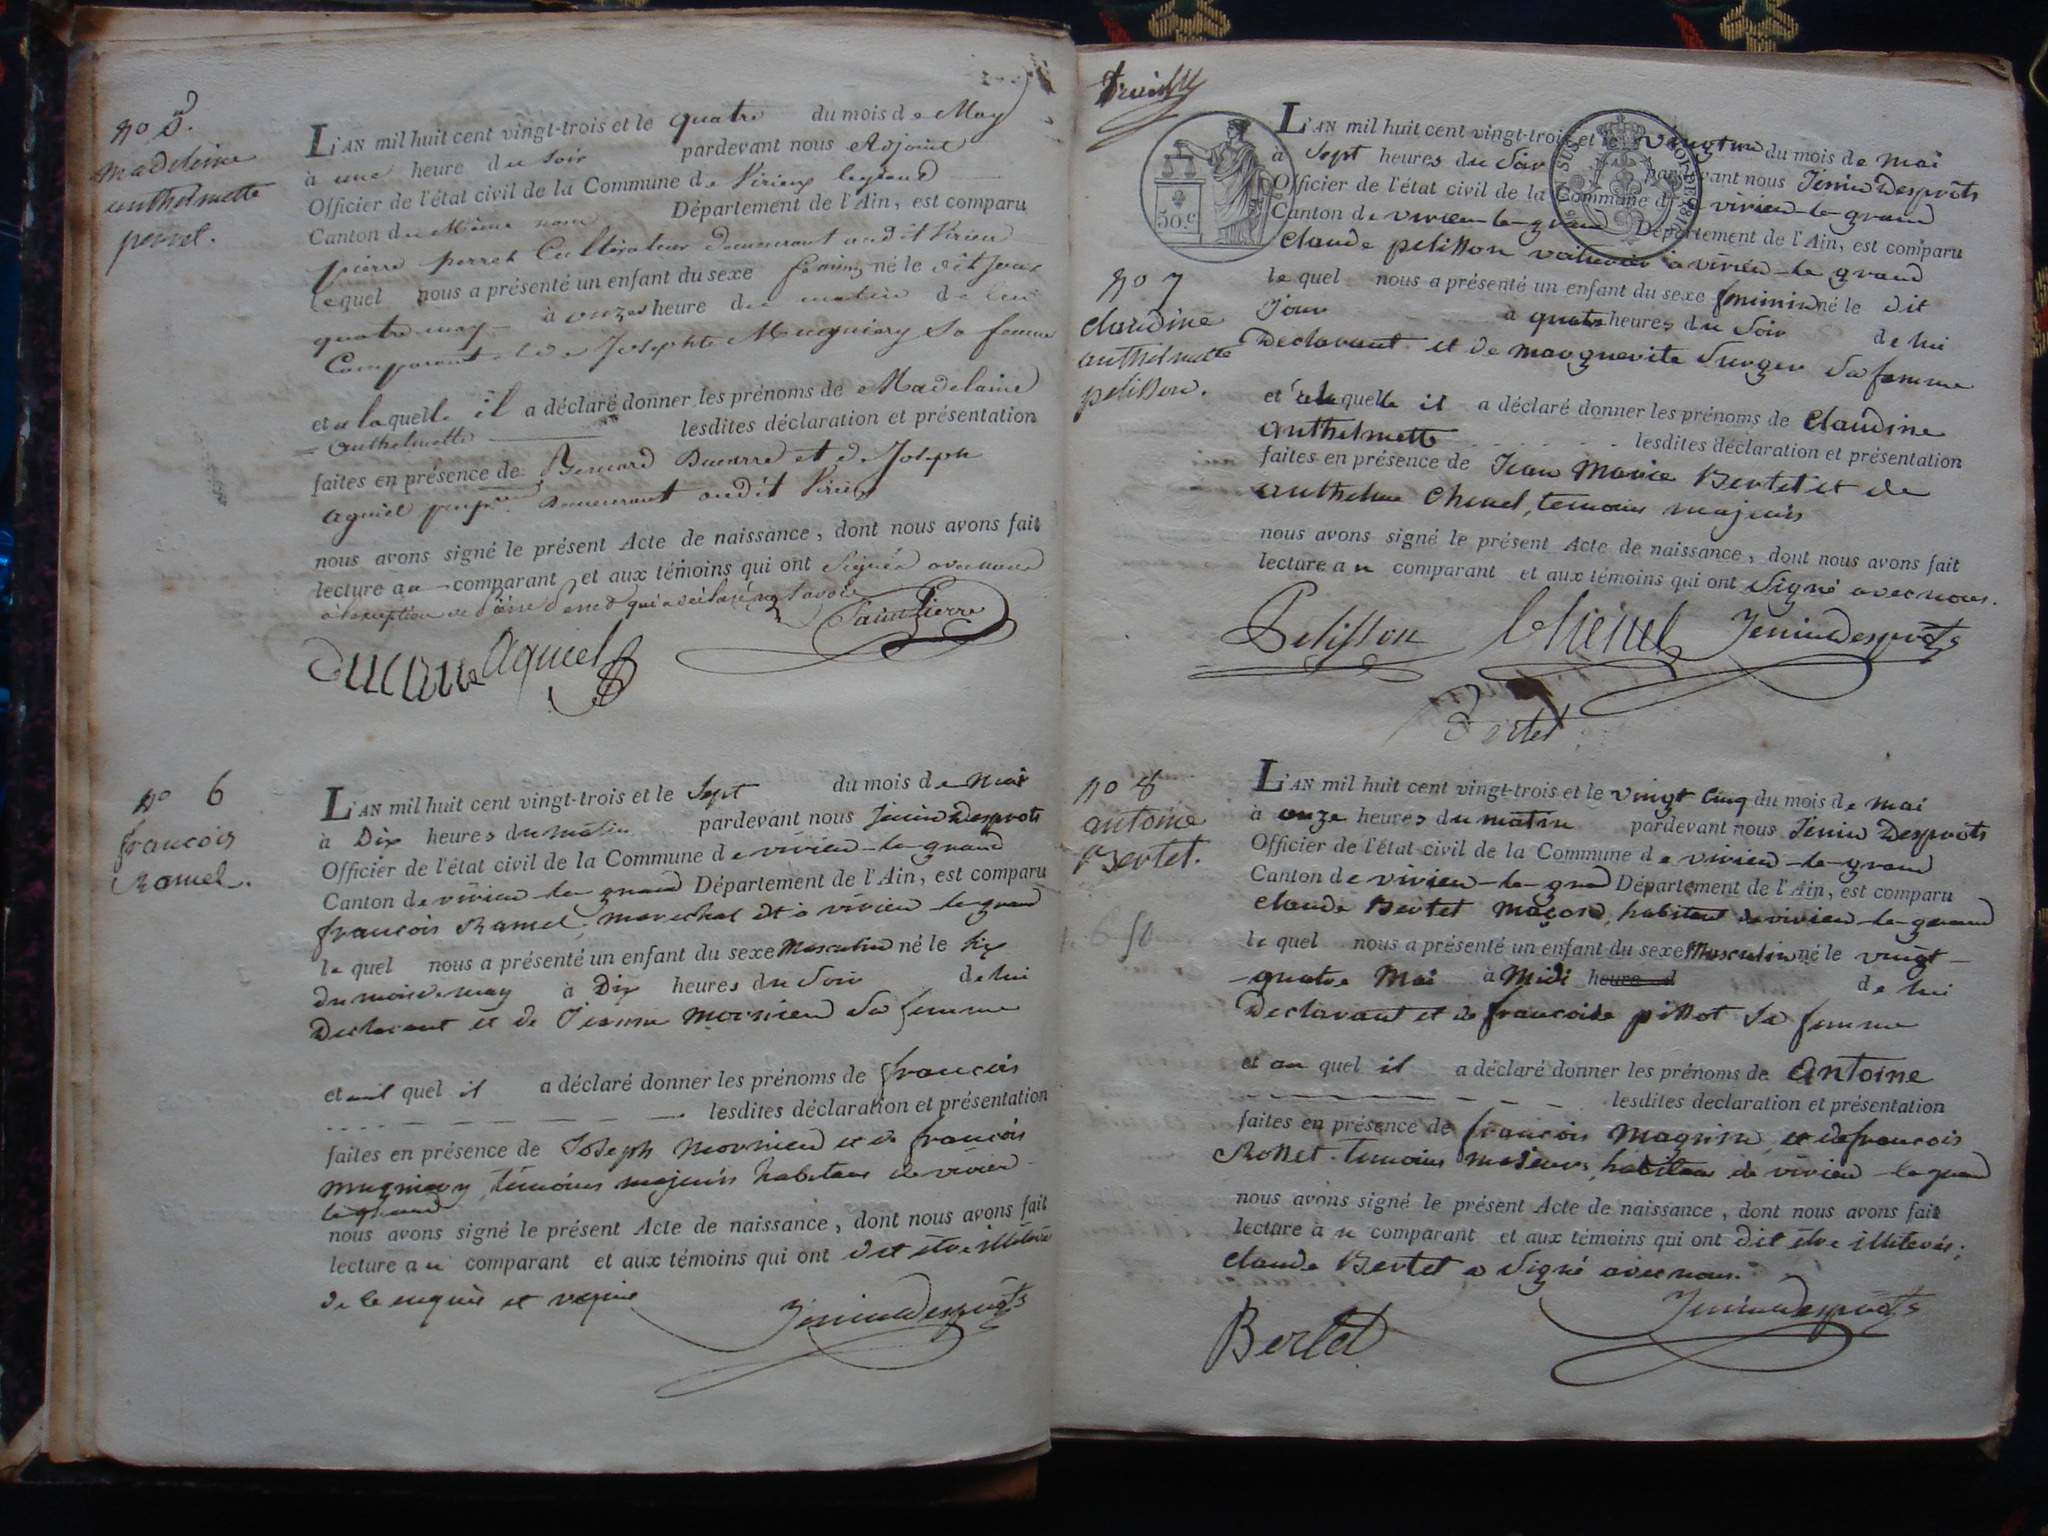 no 5.
madeleine
anthelmette
perret.
L'AN mil huit cent vingt-trois et le quatre du mois de May
à une heure du soir pardevant nous Adjoint
Officier de l'état civil de la Commune de Virieu legrand
Canton du Même nom Département de l'Ain, est comparu
pierre perret Cultivateur demeurant audit Virieu
lequel nous a présenté un enfant du sexe féminin né le dit jour
quatre may à onzes heure du matin de lui
Comparant et de Josephte Mugniery Sa femme
et a laquelle il a déclaré donner les prénoms de Madelaine
Anthelmette lesdites déclaration et présentation
faites en présence de Bernard Ducarre et de Joseph
aguiel demeurant audit Virieu
nous avons signé le présent Acte de naissance, dont nous avons fait
lecture au comparant et aux témoins qui ont Signés avec nous
a l'exception de Pierre Perret qui a déclaré ne Savoir
Ducarre Aguiel SaintPierre
no 6
francois
Ramel.
L'AN mil huit cent vingt-trois et le Sept du mois de Mai
à Dix heures du matin pardevant nous Jenin Desprots
Officier de l'état civil de la Commune de virieu-le-grand
Canton de virieu-le-grand Département de l'Ain, est comparu
francois Ramel, marechal à virieu-le-grand
le quel nous a présenté un enfant du sexe Masculin né le Six
du mois de may à Dix heures du Soir de lui
Declarant et de Jeanne Mornieu Sa femme
et quel il a déclaré donner les prénoms de francois
lesdites déclaration et présentation
faites en présence de Joseph Mornieu et de francois
mugniery, témoins majeurs habitans de virieu
le grand
nous avons signé le présent Acte de naissance, dont nous avons fait
lecture au comparant et aux témoins qui ont dit être illiterés
de ce enquis et requis
Jenin Desprots
L'AN mil huit cent vingt-trois et le vingt un du mois de mai
à Sept heures du Soir pardevant nous Jenin Desprots
Officier de l'état civil de la Commune de virieu-le-grand
Canton de virieu-le-grand Département de l'Ain, est comparu
50.c
claude pelisson voiturier à virieu-le grand
no 7
claudine
anthelmette
pelisson.
le quel nous a présenté un enfant du sexe feminin né le dit
Jour à quatre heures du Soir de lui
Declarant et de marguerite Surger Sa femme
et a la quelle il a déclaré donner les prénoms de claudine
anthelmette lesdites déclaration et présentation
faites en présence de Jean Marie Bertet et de
anthelme Chenel, temoins majeurs
nous avons signé le présent Acte de naissance, dont nous avons fait
lecture au comparant et aux témoins qui ont Signé avec nous.
Pelisson Chénel Jenin Desprots
Bertet
no 8
antoine
Bertet.
L'AN mil huit cent vingt-trois et le vingt cinq du mois de mai
à onze heures du matin pardevant nous Jenin Desprots
Officier de l'état civil de la Commune de virieu-le-grand
Canton de virieu-le-grand Département de l'Ain, est comparu
claude Bertet Maçon, habitant de virieu-le-grand
le quel nous a présenté un enfant du sexe Masculin né le vingt-
quatre Mai à Midi heure d de lui
Declarant et de francoise pissot Sa femme
et au quel il a déclaré donner les prénoms de Antoine
lesdites déclaration et présentation
faites en présence de francois Magnin, et de francois
Rosset temoins majeurs, habitans de virieu-le-grand
nous avons signé le présent Acte de naissance, dont nous avons fait
lecture à u comparant et aux témoins qui ont dit être illiterés;
claude Bertet a Signé avec nous.
Bertet Jenin Desprots